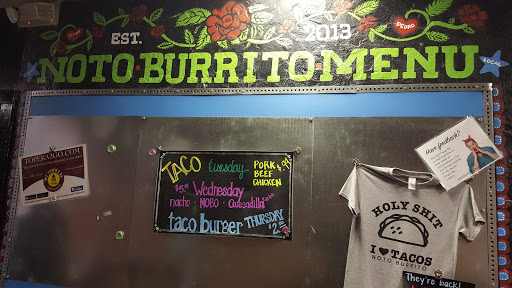 EST. 2013
PEDRO
NOTO BURRITO·MENU
LOCAL
TOPEKA2GO.COM
TACO tuesday
PORK
BEEF
CHICKEN
Wednesday
nacho · NOBO · Quesadilla
taco burger THURSDAY
Have feedback?
HOLY SHIT
I ♥ TACOS
NOTO BURRITO
They're back!